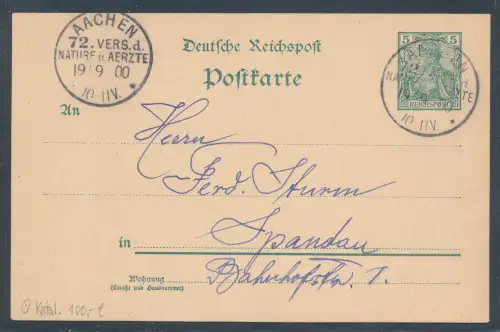 AACHEN
72. VERS. d.
NATURF. u. AERZTE
19 9 00
10-11V.
Deutsche Reichspost
Postkarte
5 5
REICHSPOST
AACHEN
10-11V.
An
Herrn
Ferd. Sturm
in Spandau
Wohnung
(Straße und Hausnummer)
Bahnhofstr. 1.
Katal. 100,- €